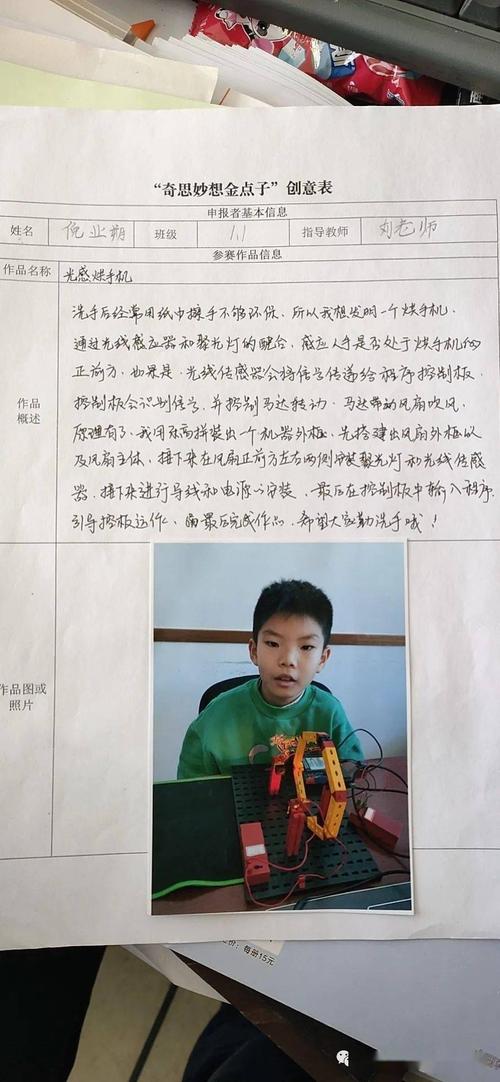 “奇思妙想金点子”创意表
申报者基本信息
姓名 倪业期 班级 1.1 指导教师 刘老师
参赛作品信息
作品名称 光感烘手机
作品
概述
洗手后经常用纸巾擦手不够环保，所以我想发明一个烘手机．
通过光线感应器和聚光灯的配合，感应人手是否处于烘手机的
正前方，如果是，光线传感器会将信号传递给程序控制板，
控制板会识别信号，并控制马达转动，马达带动风扇吹风．
原理有了，我用积高拼装出一个机器外框，先搭建出风扇外框以
及风扇主体，接下来在风扇正前方左右两侧安装聚光灯和光线传感
器．接下来进行导线和电源的安装，最后在控制板中输入程序
引导控板运作，最后完成作品．希望大家勤洗手哦！
作品图或
照片
价：每册15元